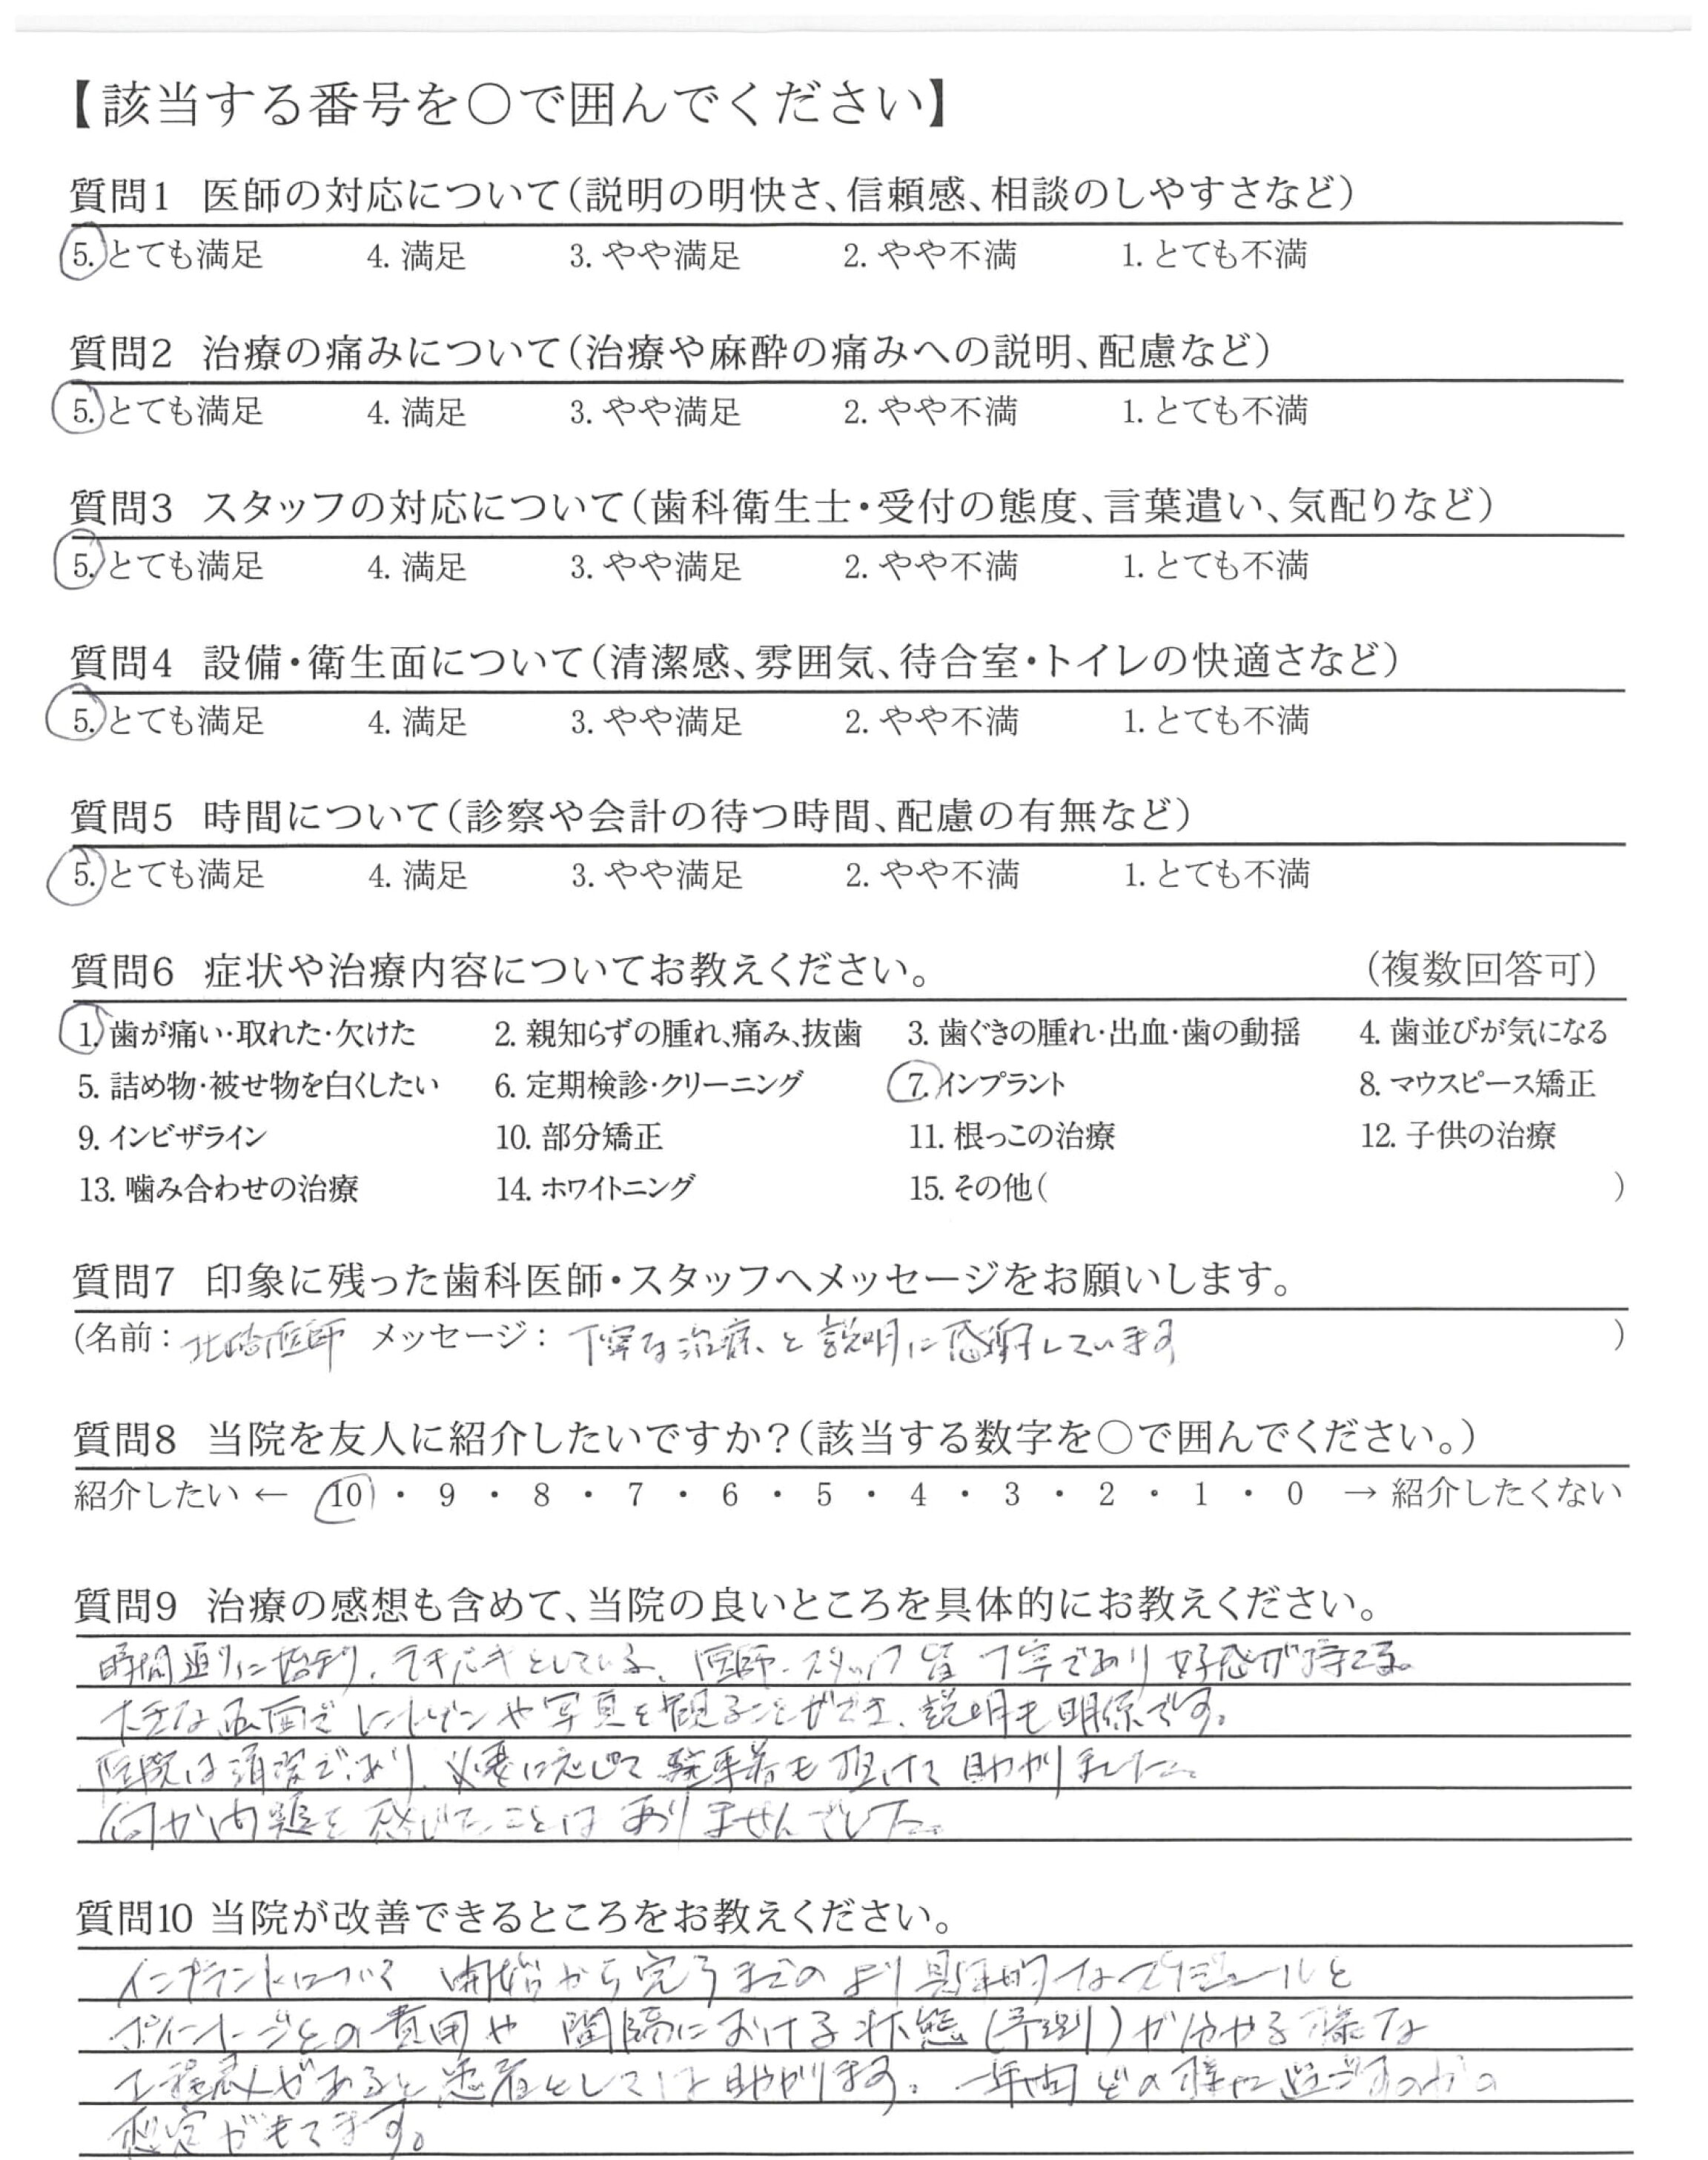 【該当する番号を○で囲んでください】
質問1 医師の対応について（説明の明快さ、信頼感、相談のしやすさなど）
5. とても満足 4. 満足 3. やや満足 2. やや不満 1. とても不満
質問2 治療の痛みについて（治療や麻酔の痛みへの説明、配慮など）
5. とても満足 4. 満足 3. やや満足 2. やや不満 1. とても不満
質問3 スタッフの対応について（歯科衛生士・受付の態度、言葉遣い、気配りなど）
5. とても満足 4. 満足 3. やや満足 2. やや不満 1. とても不満
質問4 設備・衛生面について（清潔感、雰囲気、待合室・トイレの快適さなど）
5. とても満足 4. 満足 3. やや満足 2. やや不満 1. とても不満
質問5 時間について（診察や会計の待つ時間、配慮の有無など）
5. とても満足 4. 満足 3. やや満足 2. やや不満 1. とても不満
質問6 症状や治療内容についてお教えください。 （複数回答可）
1. 歯が痛い・取れた・欠けた 2. 親知らずの腫れ、痛み、抜歯 3. 歯ぐきの腫れ・出血・歯の動揺 4. 歯並びが気になる
5. 詰め物・被せ物を白くしたい 6. 定期検診・クリーニング 7. インプラント 8. マウスピース矯正
9. インビザライン 10. 部分矯正 11. 根っこの治療 12. 子供の治療
13. 噛み合わせの治療 14. ホワイトニング 15. その他（ ）
質問7 印象に残った歯科医師・スタッフへメッセージをお願いします。
（名前： 医師 メッセージ： 丁寧な治療と説明に感謝しています ）
質問8 当院を友人に紹介したいですか？（該当する数字を○で囲んでください。）
紹介したい ← 10 ・ 9 ・ 8 ・ 7 ・ 6 ・ 5 ・ 4 ・ 3 ・ 2 ・ 1 ・ 0 → 紹介したくない
質問9 治療の感想も含めて、当院の良いところを具体的にお教えください。
時間通りに始まり、テキパキとしている、医師・スタッフ皆丁寧であり好感が持てる。
大きな画面でレントゲンや写真を観ることができ、説明も明係です。
医院は清潔であり、必要に応じて駐車券も頂けて助かりました。
何か問題を感じたことはありませんでした。
質問10 当院が改善できるところをお教えください。
インプラントについて 開始から完了までのより具体的なスケジュールと
ポイントごとの費用や 間隔における状態（予測）が分かる様な
工程表があると患者としては助かります。一年間どの様に過ごすのかの
想定がもてます。